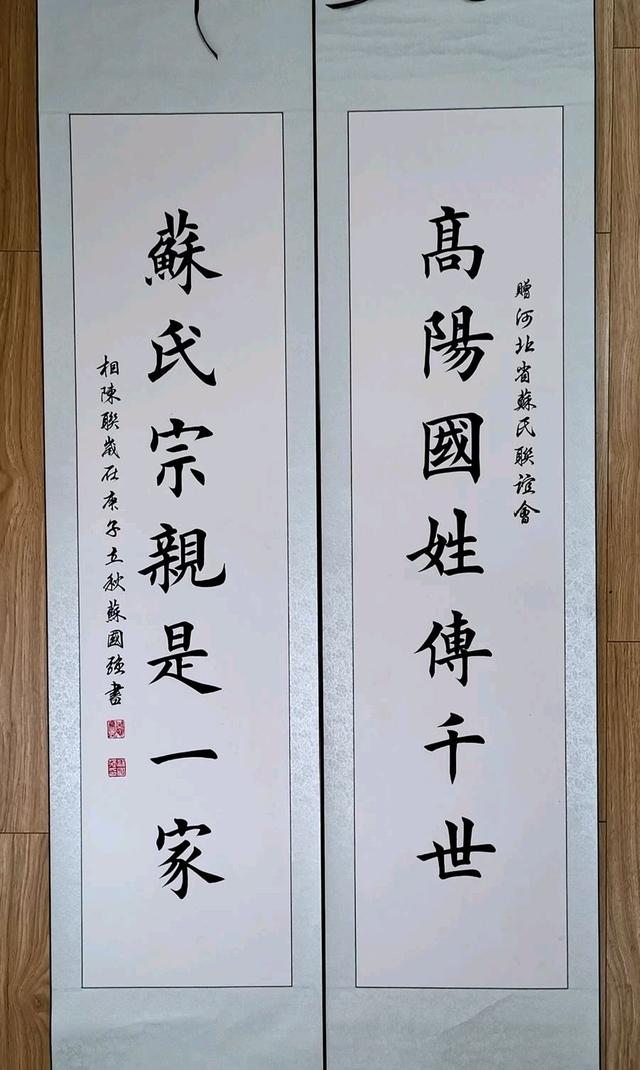 贈河北省蘇氏聯誼會
髙陽國姓傳千世
蘇氏宗親是一家
相陳聯歲在庚子立秋蘇國強書